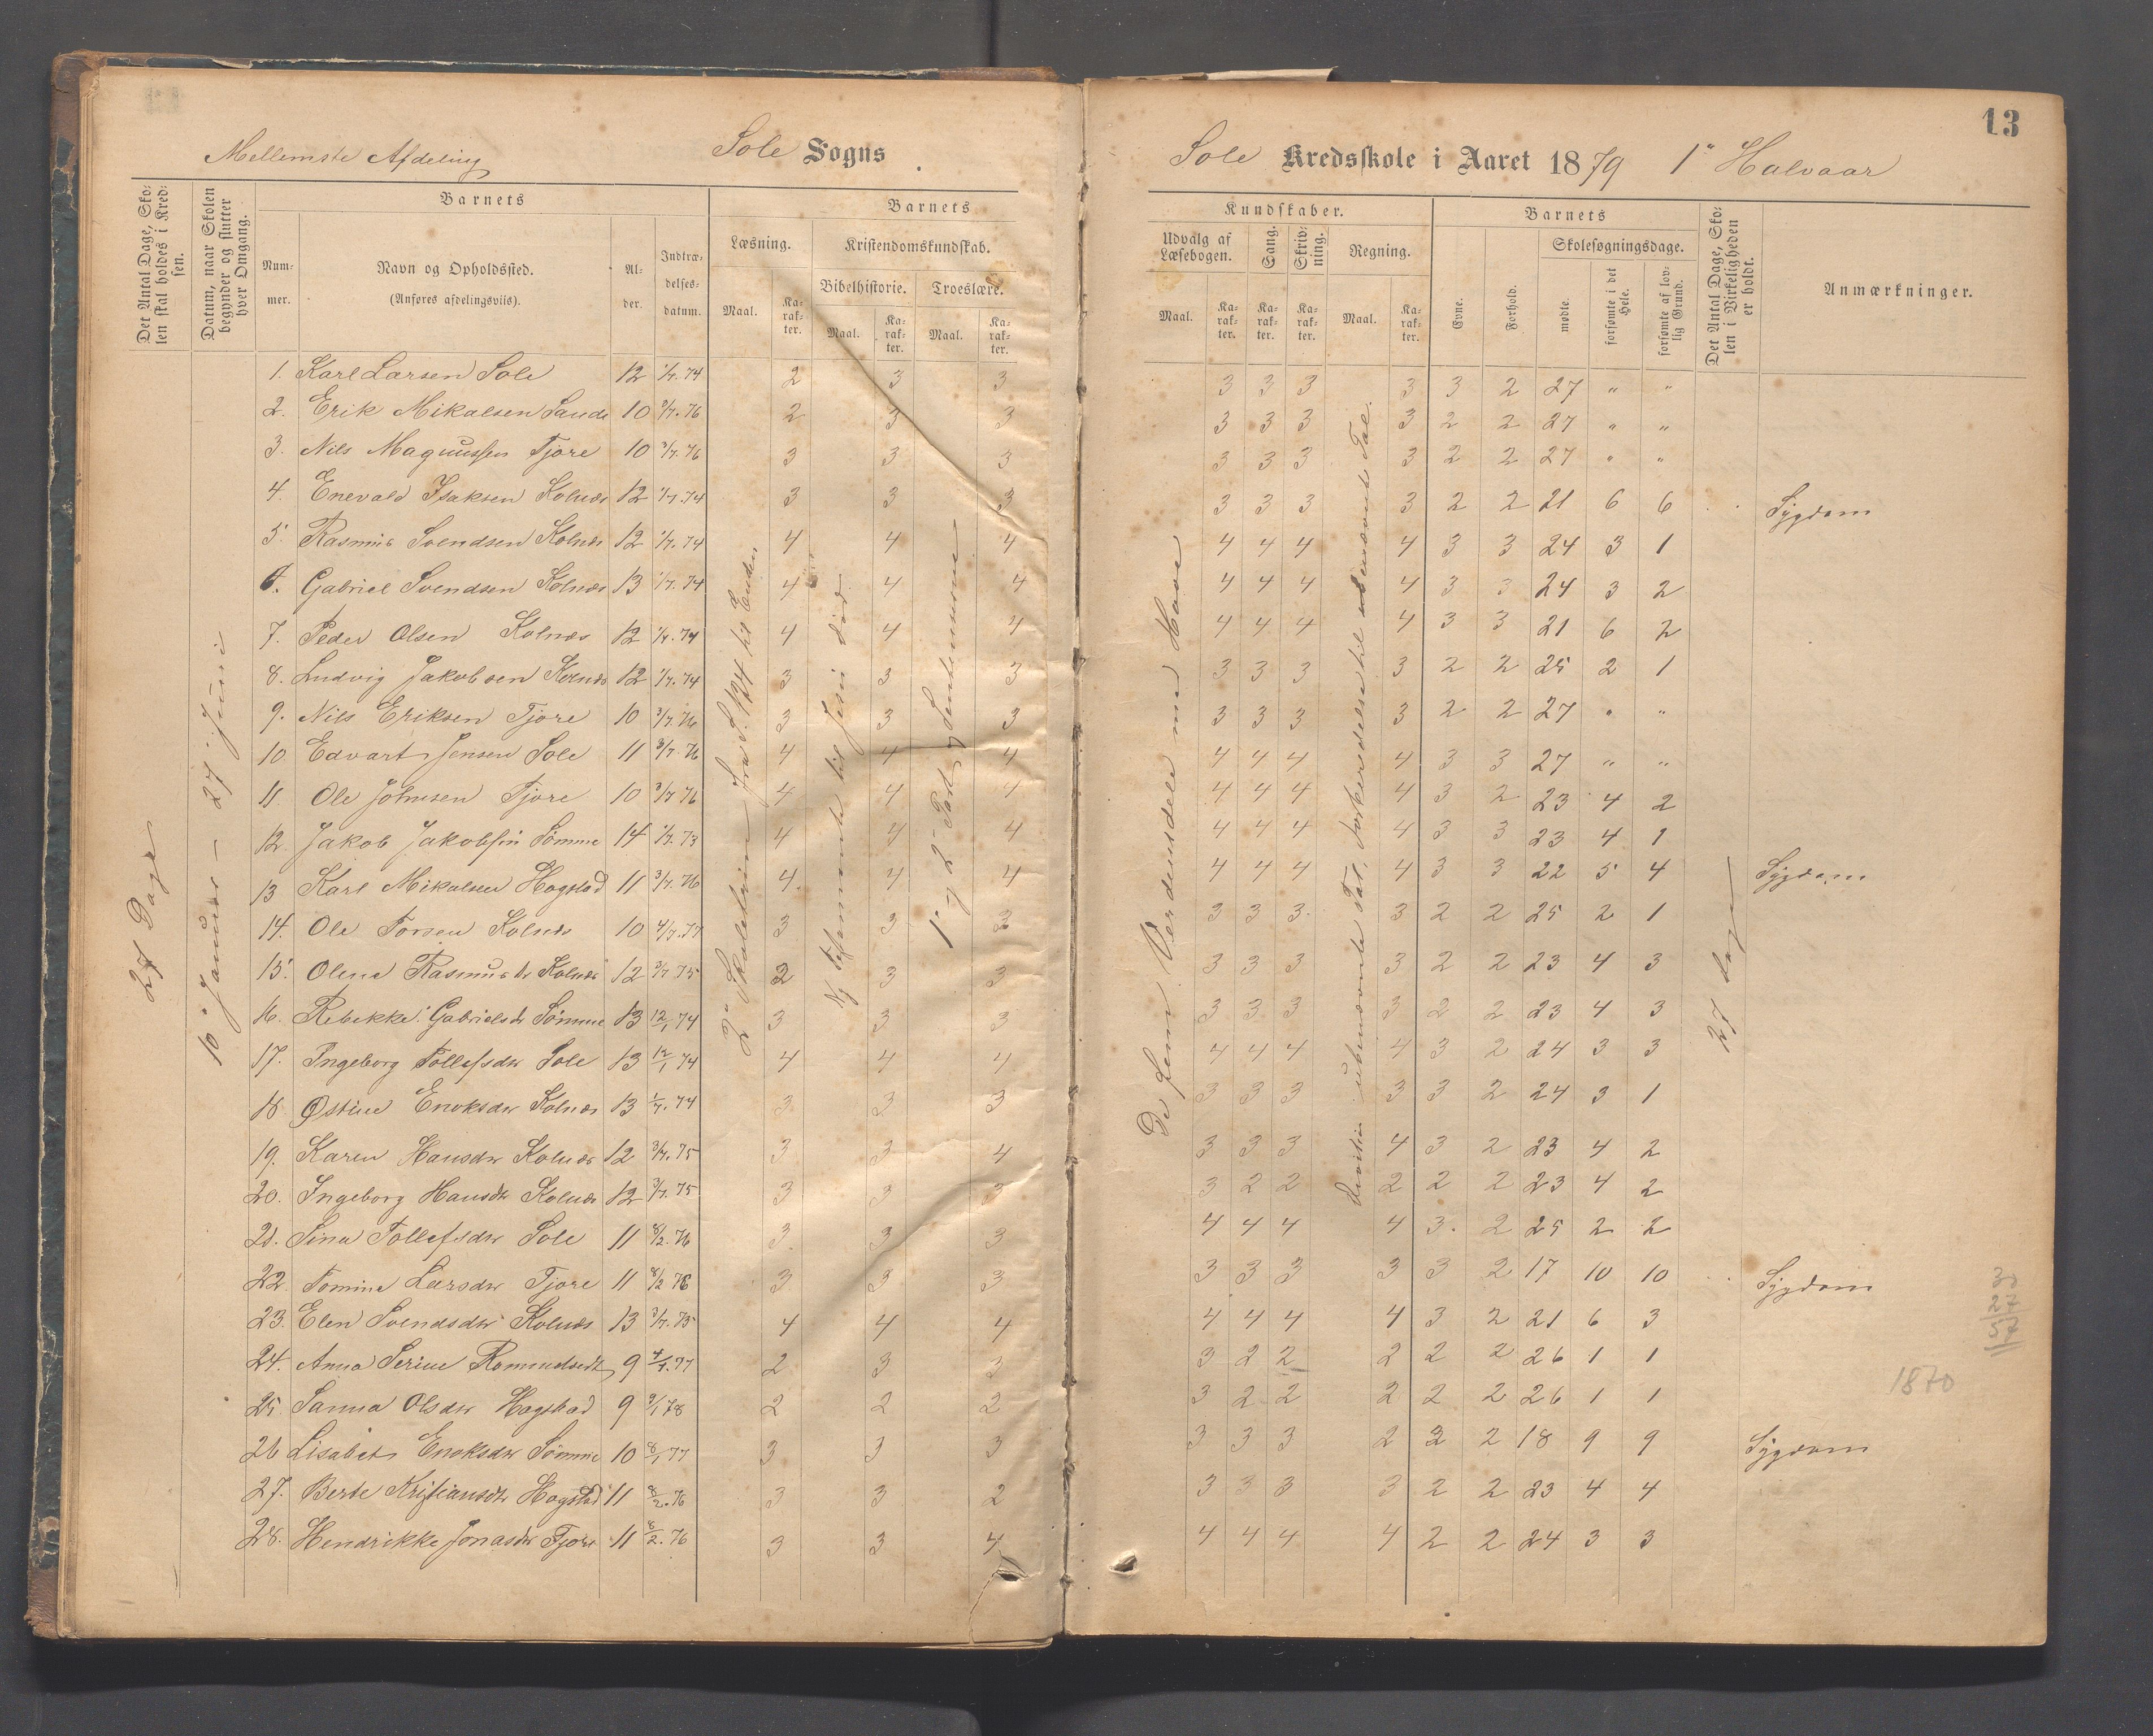 13
Mellemste Afdeling Sole Sogns
Sole Kredsskole i Aaret 1879 1" Halvaar
Det Antal Dage, Skolen skal holdes i Kredsen.
Datum, naar Skolen begynder og slutter hver Omgang.
Barnets
Nummer.
Navn og Opholdssted.
(Anføres afdelingsviis).
Alder.
Indtrædelsesdatum.
Barnets
Læsning.
Maal.
Karakter.
Kristendomskundskab.
Bibelhistorie.
Maal.
Karakter.
Troeslære.
Maal.
Karakter.
Kundskaber.
Udvalg af Læsebogen.
Maal.
Karakter.
Sang.
Karakter.
Skrivning.
Karakter.
Regning.
Maal.
Karakter.
Barnets
Evne.
Forhold.
Skolesøgningsdage.
mødte
forsømte i det Hele.
forsømte af lovlig Grund.
Det Antal Dage, Skolen i Virkeligheden er holdt.
Anmærkninger.
27 Dage
10" Januar – 27" Juni
2" Skoletrin fra S. 124 til Enden
Ny Testamente til Jesu Død
1" og 2" Part, Sentenserne
De fem Verdensdele med Have
27 Dage
1. Karl Larsen Sole 12 1/7. 74 2 3 3 3 3 3 3 3 2 27 " "
2. Erik Mikalsen Sande 10 3/7. 76 2 3 3 3 3 3 3 2 2 27 " "
3. Nils Magnussen Tjore 10 3/7. 76 3 3 3 3 3 3 3 2 2 27 " "
4. Enevald Isaksen Kolnæs 12 1/7. 74 3 3 3 3 3 3 3 2 2 21 6 6 Sygdom
5. Rasmus Svendsen Kolnæs 12 1/7. 74 4 4 4 4 4 4 4 3 3 24 3 1
6. Gabriel Svendsen Kolnæs 13 1/7. 74 4 4 4 4 4 4 4 3 3 24 3 2
7. Peder Olsen Kolnæs 12 1/7. 74 4 4 4 4 4 4 4 3 3 21 6 2
8. Ludvig Jakobsen Kolnæs 12 1/7. 74 3 3 3 3 3 3 3 2 2 25 2 1
9. Nils Eriksen Tjore 10 3/7. 76 3 3 3 3 3 3 3 2 2 27 " "
10 Edvart Jensen Sole 11 3/7. 76 4 4 4 4 4 4 4 3 3 27 " "
11 Ole Johnsen Tjore 10 3/7 76 4 4 4 4 4 4 4 3 2 23 4 2
12. Jakob Jakobsen Sömme 14 1/7. 73 4 4 4 4 4 4 4 3 3 23 4 1
13 Karl Mikalsen Hogstad 11 3/7. 76 4 4 4 4 4 4 4 3 3 22 5 4 Sygdom
14. Ole Torsen Kolnæs 10 4/7. 77 3 3 3 3 3 3 3 2 2 25 2 1
15. Olene Rasmusdr Kolnæs 12 3/7 75 2 3 3 3 3 3 3 2 2 23 4 3
16. Rebekke Gabrielsdr Sömme 13 12/1 74 3 3 3 3 3 3 3 2 2 23 4 3
17. Ingeborg Tollefsdr Sole 13 12/1 74 4 4 4 4 4 4 4 3 2 24 3 3
18 Østine Enoksdr Kolnæs 13 1/7. 74 3 3 3 3 3 3 3 3 2 24 3 1
19. Karen Hansdr Kolnæs 12 3/7. 75 3 3 4 3 3 3 4 3 2 23 4 2
20. Ingeborg Hansdr Kolnæs 12 3/7. 75 3 3 3 3 2 2 2 2 2 23 4 2
21. Sina Tollefsdr Sole 11 8/2. 76 3 3 3 4 4 4 4 3 2 25 2 2
22 Tomine Larsdr Tjore 11 8/2 76 3 3 3 3 3 3 3 3 2 17 10 10 Sygdom
23. Elen Svendsdr Kolnæs 13 3/7. 75 4 4 4 4 4 4 4 3 2 21 6 3
24. Anna Serine 9 77 2 3 3 3 2 2 2 2 2 26 1 1
25 Sanna Olsdr Hogstad 9 9/1 78 2 2 2 3 2 2 2 2 2 26 1 1
26 Lisabet Enoksdr Sömme 10 8/1 77 3 3 3 3 3 3 2 2 2 18 9 9 Sygdom
27. Berte Kristiansdr Hogstad 11 8/2. 76 3 3 2 3 3 3 3 2 2 23 4 4
28. Hendrikke Jonasdr Tjore 11 8/2. 76 3 3 4 4 4 4 4 2 2 24 3 3
27
57
1870